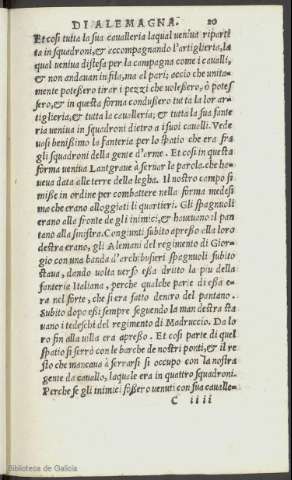 DI ALEMAGNA. 20
Et cosi tutta la sua cavalleria laqual veniva riparti
ta in squadroni, & accompagnando l'artiglieria, la
qual veniva distesa per la campagna come i cavalli,
& non andavan in fila, ma al pari; accio che unita-
mente potessero tirar i pezzi che volessero, ò potes
sero, & in questa forma condussero tutta la lor ar-
tiglieria, & tutta la cavalleria; & tutta la sua fante
ria veniva in squadroni dietro a i suoi cavalli. Vede
vasi benissimo la fanteria per lo spatio che era fra
gli squadroni della gente d'arme. Et cosi in questa
forma veniva Lantgrave à servar la parola, che ha-
veva data alle terre della legha. Il nostro campo si
misse in ordine per combattere nella forma medesi
ma che erano alloggiati li quartieri. Gli spagnuoli
erano alla fronte de gli inimici, & havevano il pan
tano alla sinistra. Congiunti subito apresso alla loro
destra erano, gli Alemani del regimento di Gior-
gio con una banda d'archibusieri spagnuoli subito
stava, dando volta verso essa dritto la piu della
fanteria Italiana, perche qualche parte di essa e-
ra nel forte, che si era fatto dentro del pantano.
Subito dopo essi sempre seguendo la man destra sta
vano i tedeschi del regimento di Madruccio. Da lo
ro fin alla villa era apresso. Et cosi parte di quel
spatio si serrò con le barche de nostri ponti, & il re
sto che mancava à serrarsi si occupo con la nostra
gente da cavallo, laquale era in quattro squadroni.
Perche se gli inimici fossero venuti con sua cavalle-
C iiii
Biblioteca de Galicia